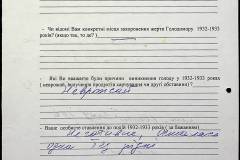 - Чи відомі Вам конкретні місця захоронення жертв Голодомору 1932-1933
років? (якщо так, то де?)
- Які Ви вважаєте були причини виникнення голоду у 1932-1933 роках
( неврожай, вилучення продуктів харчування чи другі обставини)
Неврожай
- Ваше особисте ставлення до подій 1932-1933 років ( за бажанням)
одна без рідні